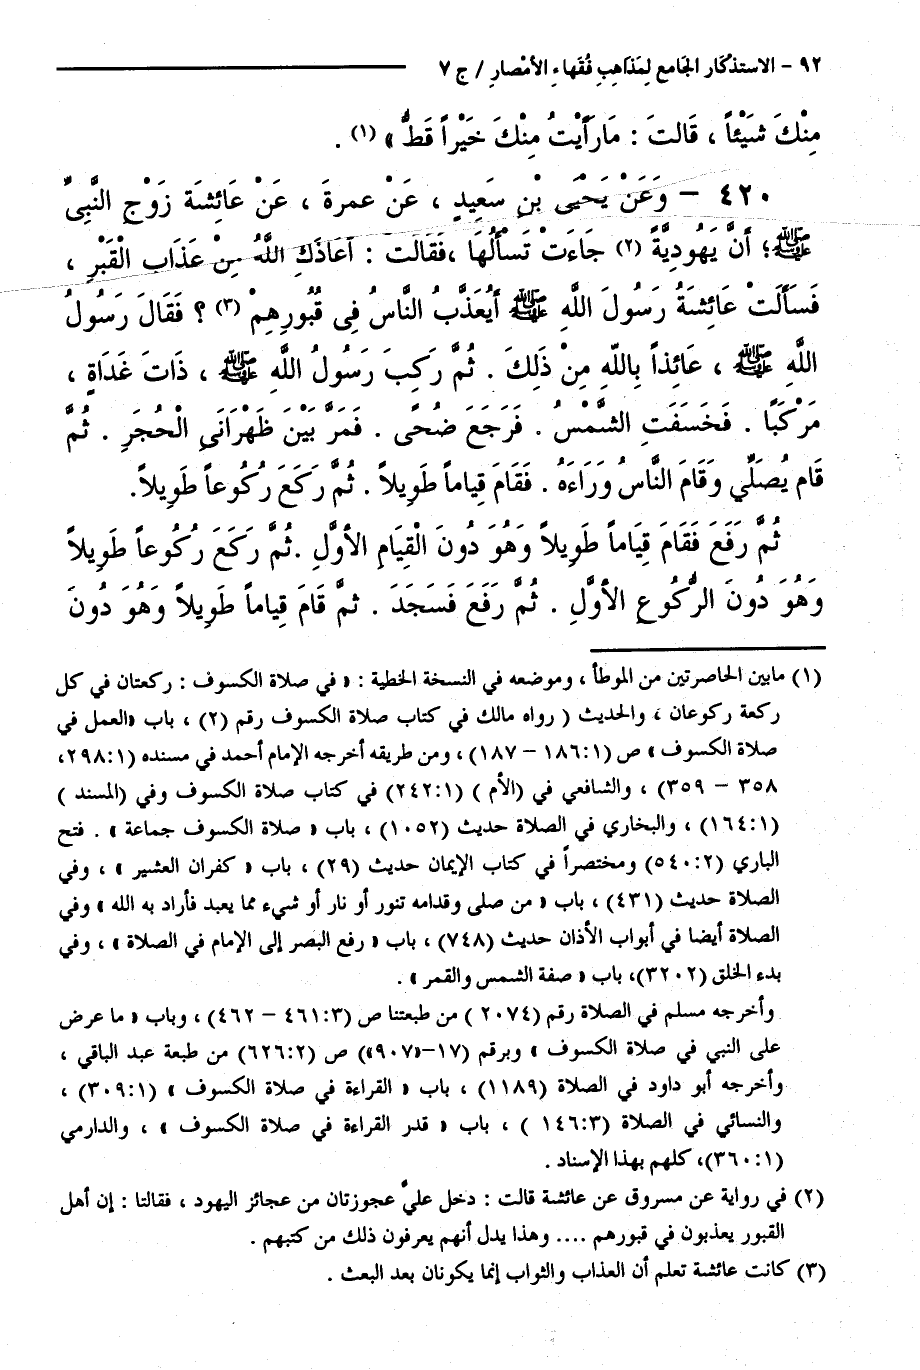 ٩٢ – الاستذكار الجامع لِمَذاهِبِ فُقَهاءِ الأمْصارِ / ج ٧
مِنْكَ شَيْئاً ، قَالَتَ : مَارَأَيْتُ مِنْكَ خَيْراً قَطُّ » (١) .
٤٢٠ – وَعَنْ يَحْيَى بْنِ سَعِيدٍ ، عَنْ عمرةَ ، عَنْ عَائِشَةَ زَوْجِ النَّبِيِّ
ﷺ؛ أَنَّ يَهُودِيَّةً (٢) جَاءَتْ تَسْأَلُهَا ،فَقَالَتْ : أعَاذَكِ اللَّهُ مِنْ عَذَابِ الْقَبْرِ ،
فَسَأَلَتْ عَائِشَةُ رَسُولَ اللَّهِ ﷺ أيُعَذَّبُ النَّاسُ فِى قُبُورِهِمْ (٣) ؟ فَقَالَ رَسُولُ
اللَّهِ ﷺ ، عَائِذاً بِاللَّهِ مِنْ ذَلِكَ . ثُمَّ رَكِبَ رَسُولُ اللَّهِ ﷺ ، ذَاتَ غَدَاةٍ ،
مَرْكَبًا . فَخَسَفَتِ الشَّمْسُ . فَرَجَعَ ضُحًى . فَمَرَّ بَيْنَ ظَهْرَانَيِ الْحُجَرِ . ثُمَّ
قَام يُصَلِّي وَقَامَ النَّاسُ وَرَاءَهُ . فَقَامَ قياماً طَوِيلاً . ثُمَّ رَكَعَ رُكُوعاً طَوِيلاً.
ثُمَّ رَفَعَ فَقَامَ قِيَاماً طَوِيلاً وَهُوَ دُونَ الْقِيَامِ الأوَّلِ .ثُمَّ رَكَعَ رُكُوعاً طَوِيلاً
وَهُوَ دُونَ الرُّكُوعِ الأوَّلِ . ثُمَّ رَفَعَ فَسَجَدَ . ثمَّ قَامَ قِياماً طَوِيلاً وَهُوَ دُونَ
(١) مابين الحاصرتين من الموطأ ، وموضعه في النسخة الخطية : « في صلاة الكسوف : ركعتان في كل
ركعة ركوعان ، والحديث ( رواه مالك في كتاب صلاة الكسوف رقم (٢) ، باب «العمل في
صلاة الكسوف » ص (١٨٦:١ – ١٨٧) ، ومن طريقه أخرجه الإمام أحمد في مسنده (٢٩٨:١،
٣٥٨ – ٣٥٩) ، والشافعي في (الأم ) (٢٤٢:١) في كتاب صلاة الكسوف وفي (المسند )
(١٦٤:١) ، والبخاري في الصلاة حديث (١٠٥٢) ، باب « صلاة الكسوف جماعة » . فتح
الباري (٥٤٠:٢) ومختصراً في كتاب الإيمان حديث (٢٩) ، باب « كفران العشير » ، وفي
الصلاة حديث (٤٣١) ، باب « من صلى وقدامه تنور أو نار أو شيء مما يعبد فأراد به الله » وفي
الصلاة أيضا في أبواب الأذان حديث (٧٤٨) ، باب « رفع البصر إلى الإمام في الصلاة » ، وفي
بدء الخلق (٣٢٠٢)، باب « صفة الشمس والقمر » .
وأخرجه مسلم في الصلاة رقم (٢٠٧٤ ) من طبعتنا ص (٤٦١:٣ – ٤٦٢) ، وباب « ما عرض
على النبي في صلاة الكسوف » وبرقم (١٧–«٩٠٧») ص (٦٢٦:٢) من طبعة عبد الباقي ،
وأخرجه أبو داود في الصلاة (١١٨٩) ، باب « القراءة في صلاة الكسوف » (٣٠٩:١) ،
والنسائي في الصلاة (١٤٦:٣ ) ، باب « قدر القراءة في صلاة الكسوف » ، والدارمي
(٣٦٠:١)، كلهم بهذا الإسناد .
(٢) في رواية عن مسروق عن عائشة قالت : دخل عليَّ عجوزتان من عجائز اليهود ، فقالتا : إن أهل
القبور يعذبون في قبورهم .... وهذا يدل أنهم يعرفون ذلك من كتبهم .
(٣) كانت عائشة تعلم أن العذاب والثواب إنما يكونان بعد البعث .